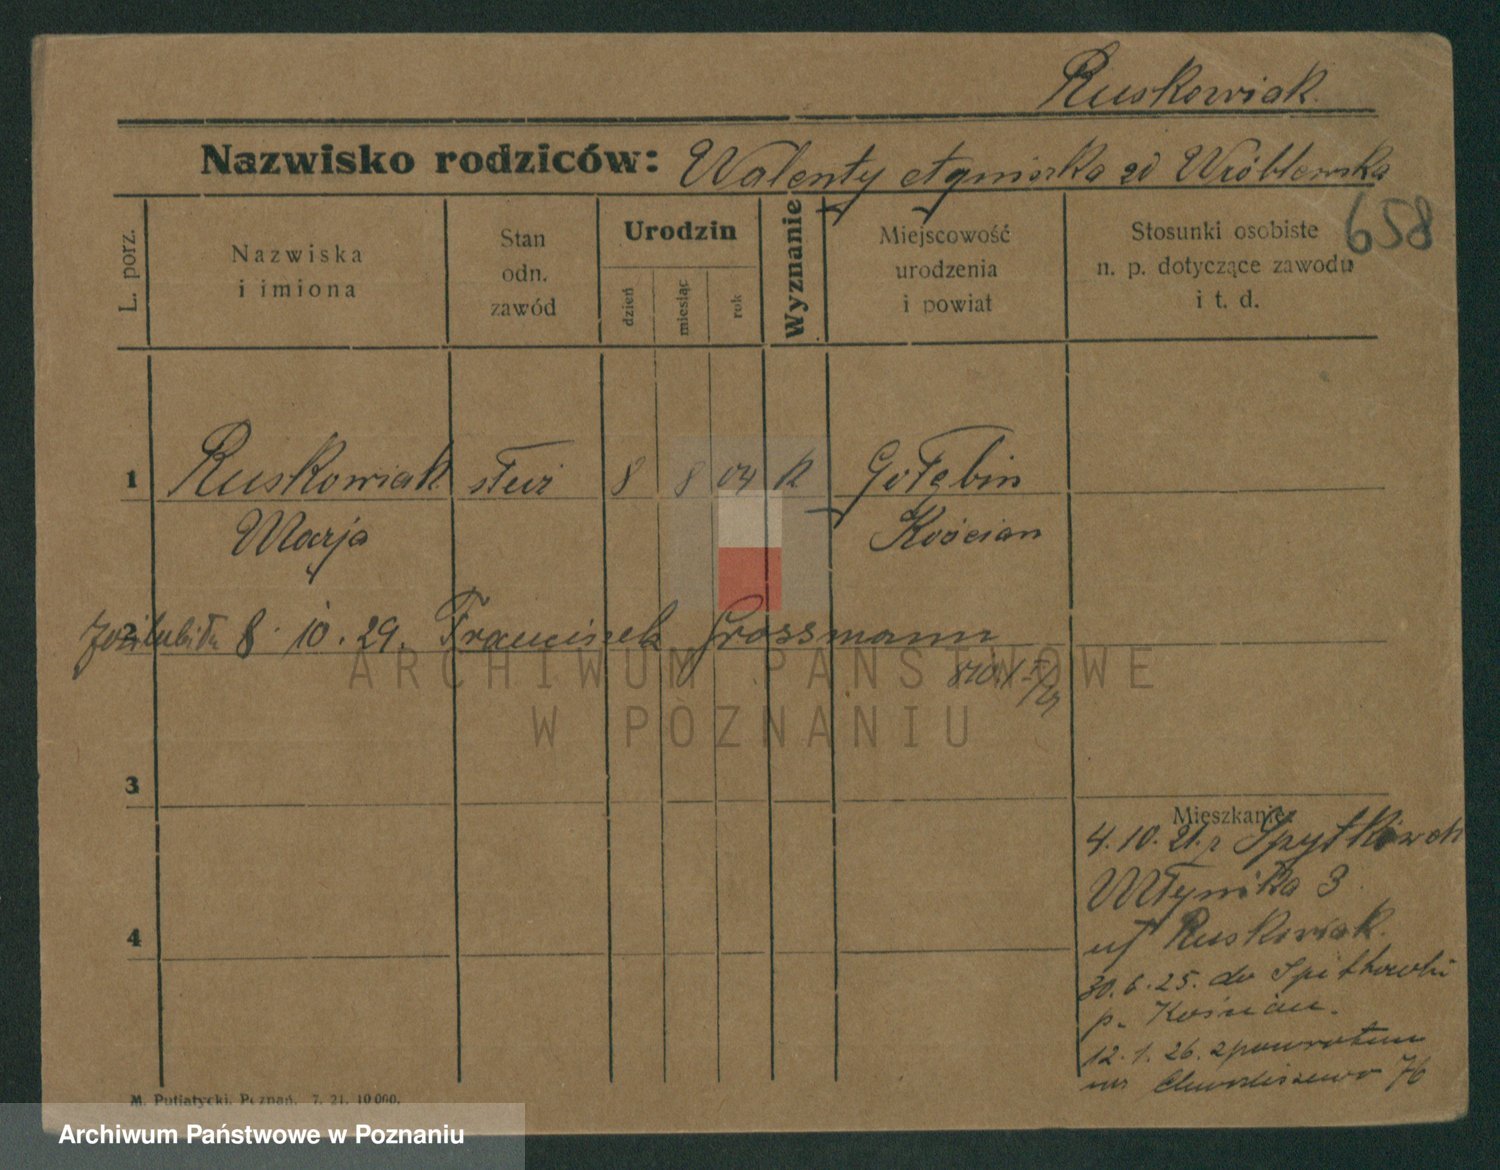 Ruskowiak
Nazwisko rodziców: Walenty Agnieszka zd Wróblewska
658
L. porz.
Nazwiska
i imiona
Stan
odn.
zawód
Urodzin
dzień
miesiąc
rok
Wyznanie
Miejscowość
urodzenia
i powiat
Stosunki osobiste
n. p. dotyczące zawodu
i t. d.
1 Ruskowiak służ 8 8 04 k Gołębin
Marja Kościan
2
8. 10. 29. Franciszek Grossmann
ARCHIWUM PAŃSTWOWE
W POZNANIU
3
Mieszkanie:
4. 10. 21. z Spytkówek
Młyńska 3
uf Ruskowiak.
4
30. 6. 25. do Spitkówki
p. Kościan.
12. 1. 26. zpowrotem
76
M. Putiatycki, Poznań. 7. 21. 10 000.
Archiwum Państwowe w Poznaniu